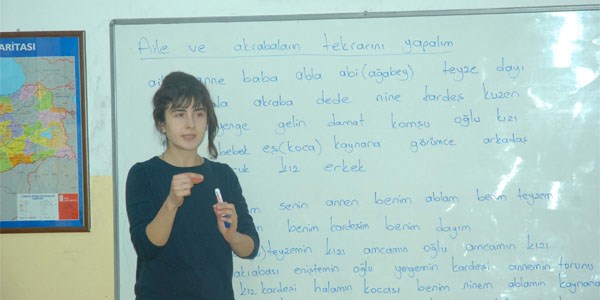 ARİTASI
Aile ve akrabaların tekrarını yapalım
anne baba abla abi (ağabey) teyze dayı
akraba dede nine kardeş kuzen
yenge gelin damat komşu oğlu kızı
bebek eş (koca) kaynana görümce arkadaş
kız erkek
senin annen benim ablam benim teyzem
benim kardeşim benim dayım
teyzemin kızı amcamın oğlu amcamın kızı
akrabası eniştemin oğlu yengemin kardeşi annemin torunu
kız kardeşi halamın kocası benim ninem ablamın kaynana